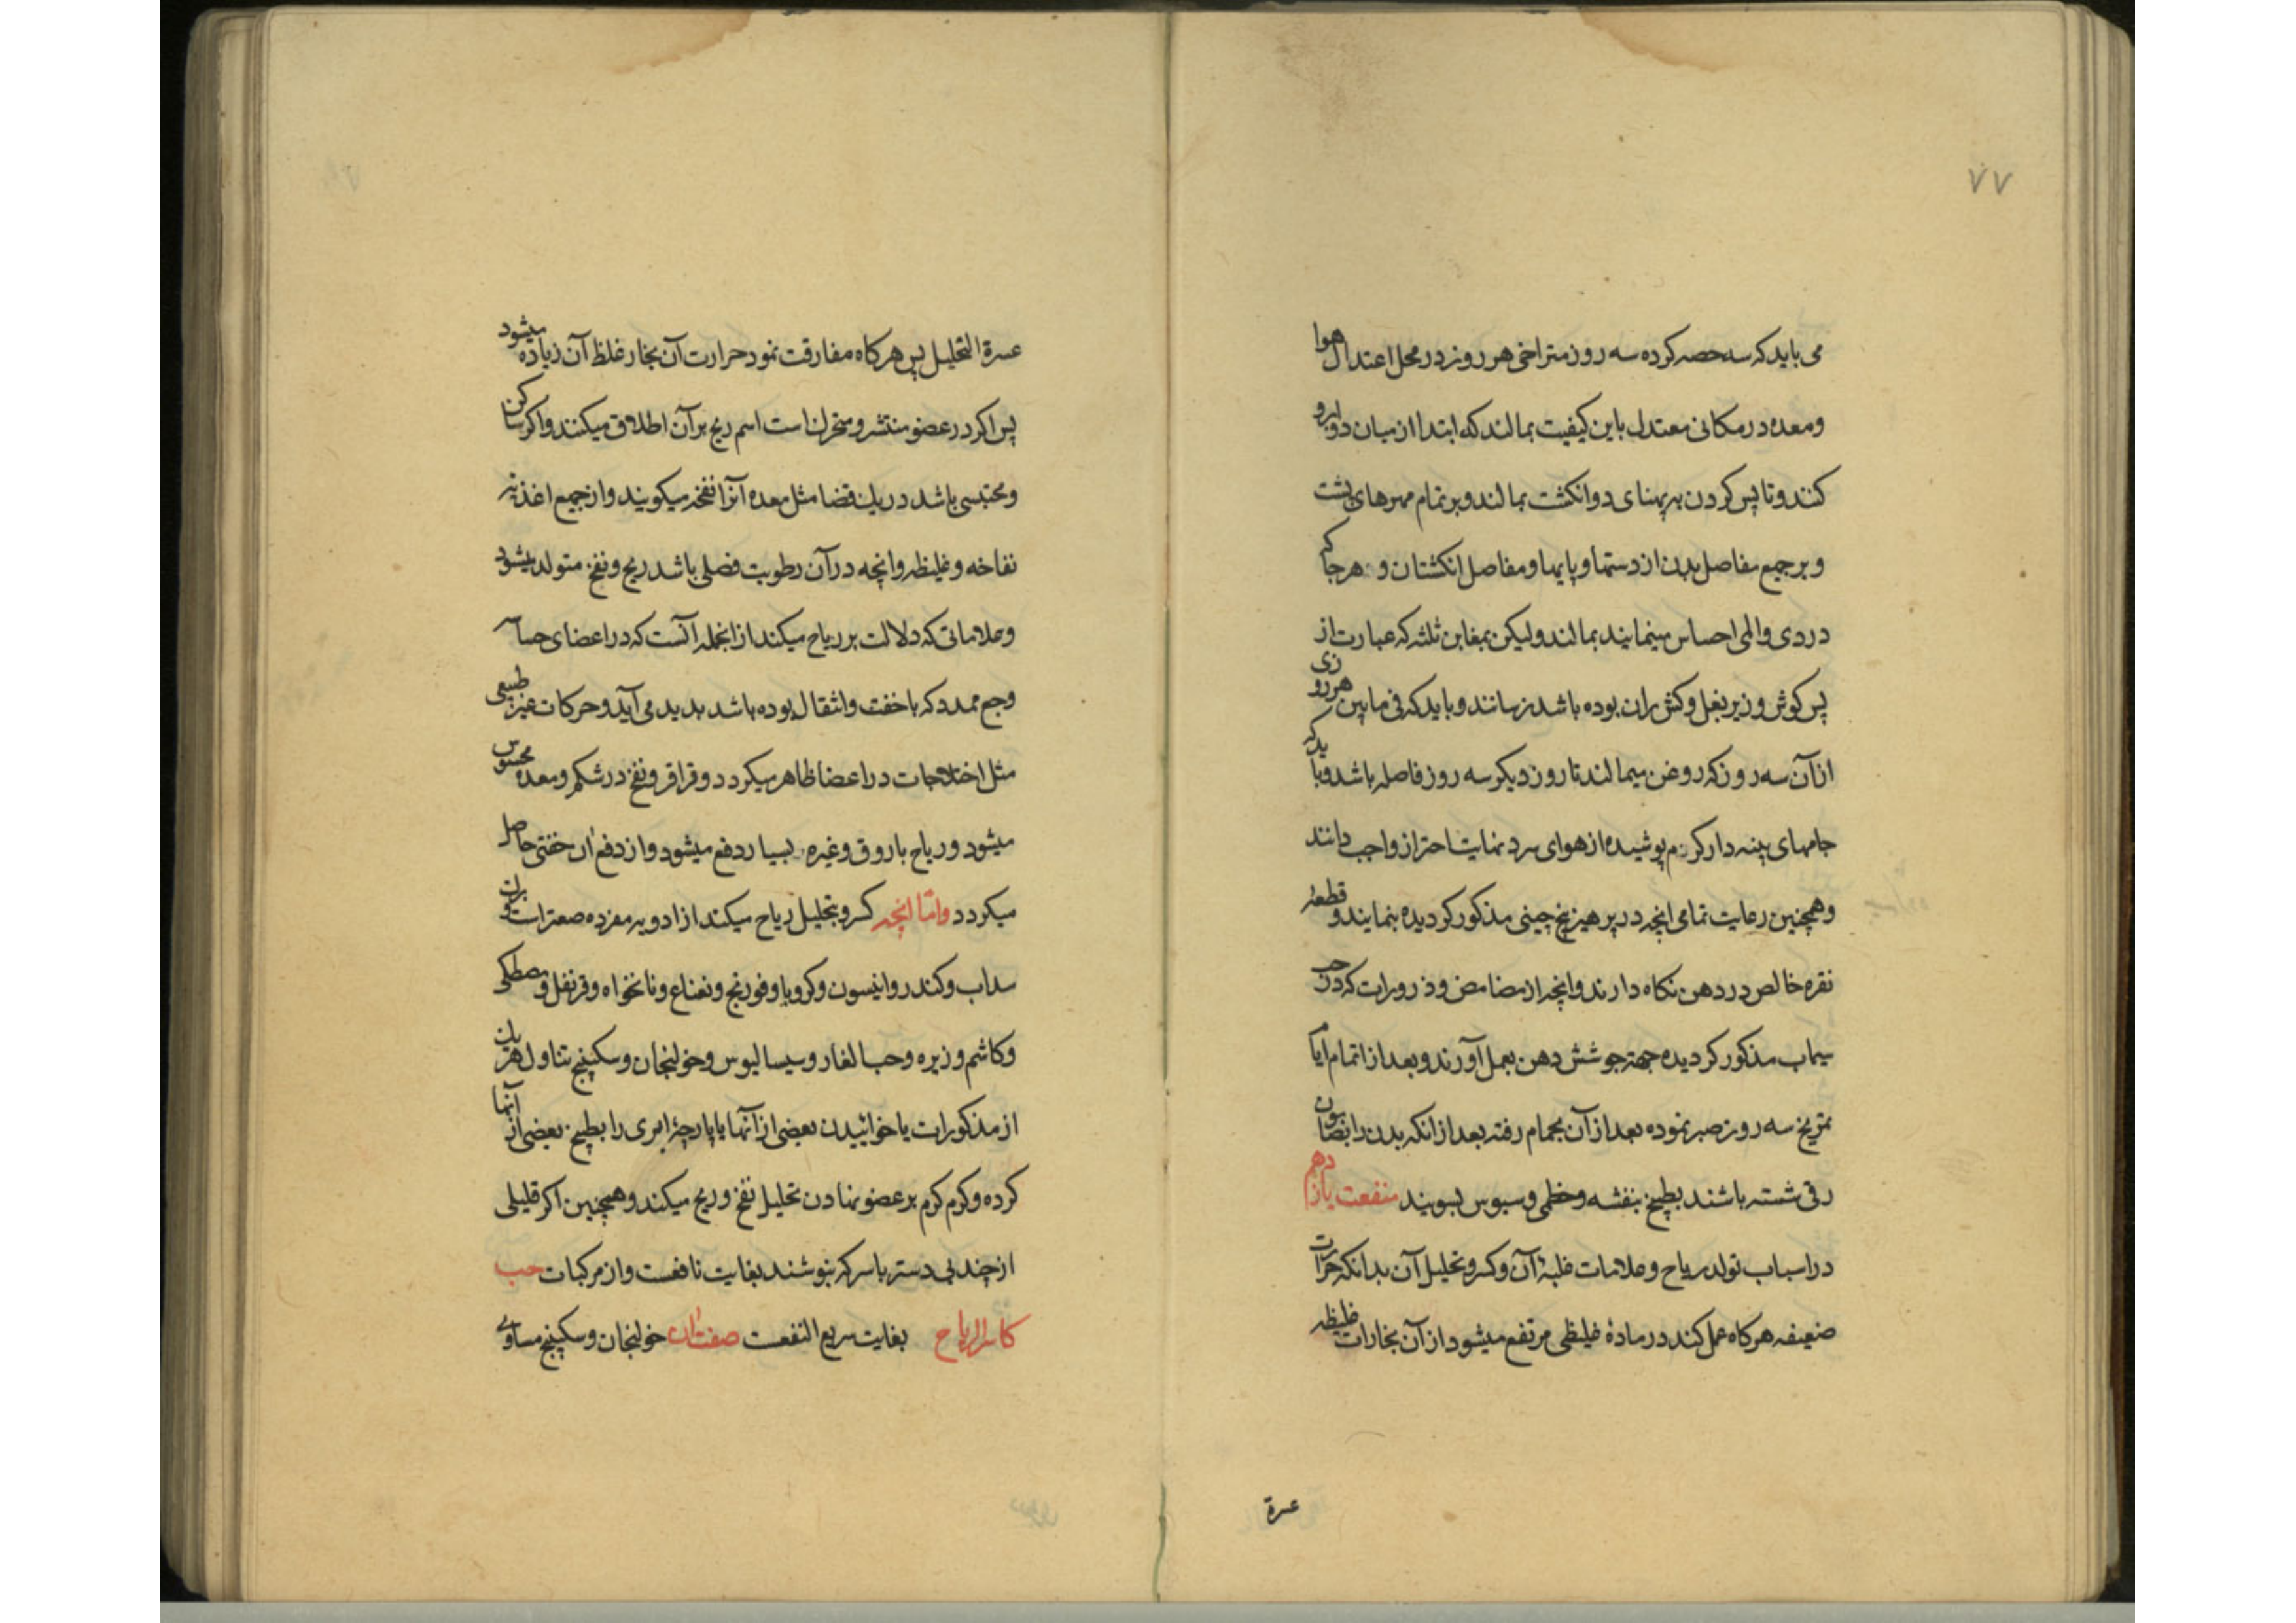 ۷۷
می باید که سه حصه کرده سه روز متراخی هر روز در محل اعتدال هوا
ومعده در مکانی معتدل باین کیفیت بمالند که ابتدا از میان دو ابرو
کنند و تا پس کردن به پهنای دو انکشت بمالند و بر تمام مهرهای پشت
و بر جمیع مفاصل بدن از دستها و پایها و مفاصل انکشتان و هر جا که
دردی والمی احساس مینمایند بمالند ولیکن بمغابن ثلثه که عبارت از
پس کوش و زیر بغل و کش ران بوده باشد نرسانند و باید که فی مابین هر روزی
از آن سه روز که روغن میمالند تا روز دیکر سه روز فاصله باشد و باید که
جامهای پنبه دار کرم پوشیده از هوای سرد نهایت احتراز واجب دانند
وهمچنین رعایت تمامی انچه در پرهیز بیخ چینی مذکور کردیده بنمایند و قطعهٔ
نقره خالص در دهن نکاه دارند وانچه از مضامض و ذرورات که در حب
سیماب مذکور کردیده جهة جوشش دهن بعمل آورند و بعد از اتمام ایام
تمریخ سه روز صبر نموده بعد از آن بحمام رفته بعد از انکه بدن را بصابون
رقی شسته باشند بطبیخ بنفشه و خطمی و سبوس بسویند منفعت یازدهم
در اسباب تولد ریاح و علامات غلبهٔ آن وکسر و تحلیل آن بدانکه حرارت
ضعیفه هر کاه عمل کند در مادهٔ غلیظی مرتفع میشود از آن بخارات غلیظه
عسرة
عسرة التحلیل پس هر کاه مفارقت نمود حرارت آن بخار غلظ آن زیاده میشود
پس اکر در عضو منتشر و متحرک است اسم ریح بر آن اطلاق میکنند و اکر ساکن
ومحتبس باشد در یک فضا مثل معده آنرا نفخه میکویند و از جمیع اغذیه
نفاخه و غلیظه وانچه در آن رطوبت فضلی باشد ریح و نفخ متولد میشود
وعلاماتی که دلالت بر ریاح میکند از انجمله آنست که در اعضای حساسه
وجع ممدد که با خفت وانتقال بوده باشد پدید می آید و حرکات غیر طبیعی
مثل اختلاجات در اعضا ظاهر میکردد و قراقر و نفخ در شکم و معده محسوس
میشود و ریاح باروق وغیره بسیار دفع میشود و از دفع آن خفتی حاصل
میکردد واما انچه کسر و تحلیل ریاح میکند از ادویه مفرده صعتر است
سداب وکندر وانیسون وکرویا و فودنج و نعناع و نانخواه و قرنفل و مصطکی
وکاشم و زیره وحب الغار و سیسالیوس و خولنجان و سکبینج تناول هر یک
از مذکورات یا خوائیدن بعضی از آنها یا پارچهٔ ابری را بطبیخ بعضی از آنها
کرده وکرم کرم بر عضو نهادن تحلیل نفخ و ریح میکند و همچنین اکر قلیلی
از جند بی دستر با سرکه بنوشند بغایت نافعست و از مرکبات حب
کاسر الریاح بغایت سریع النفعست صفت آن خولنجان و سکبینج مساوی